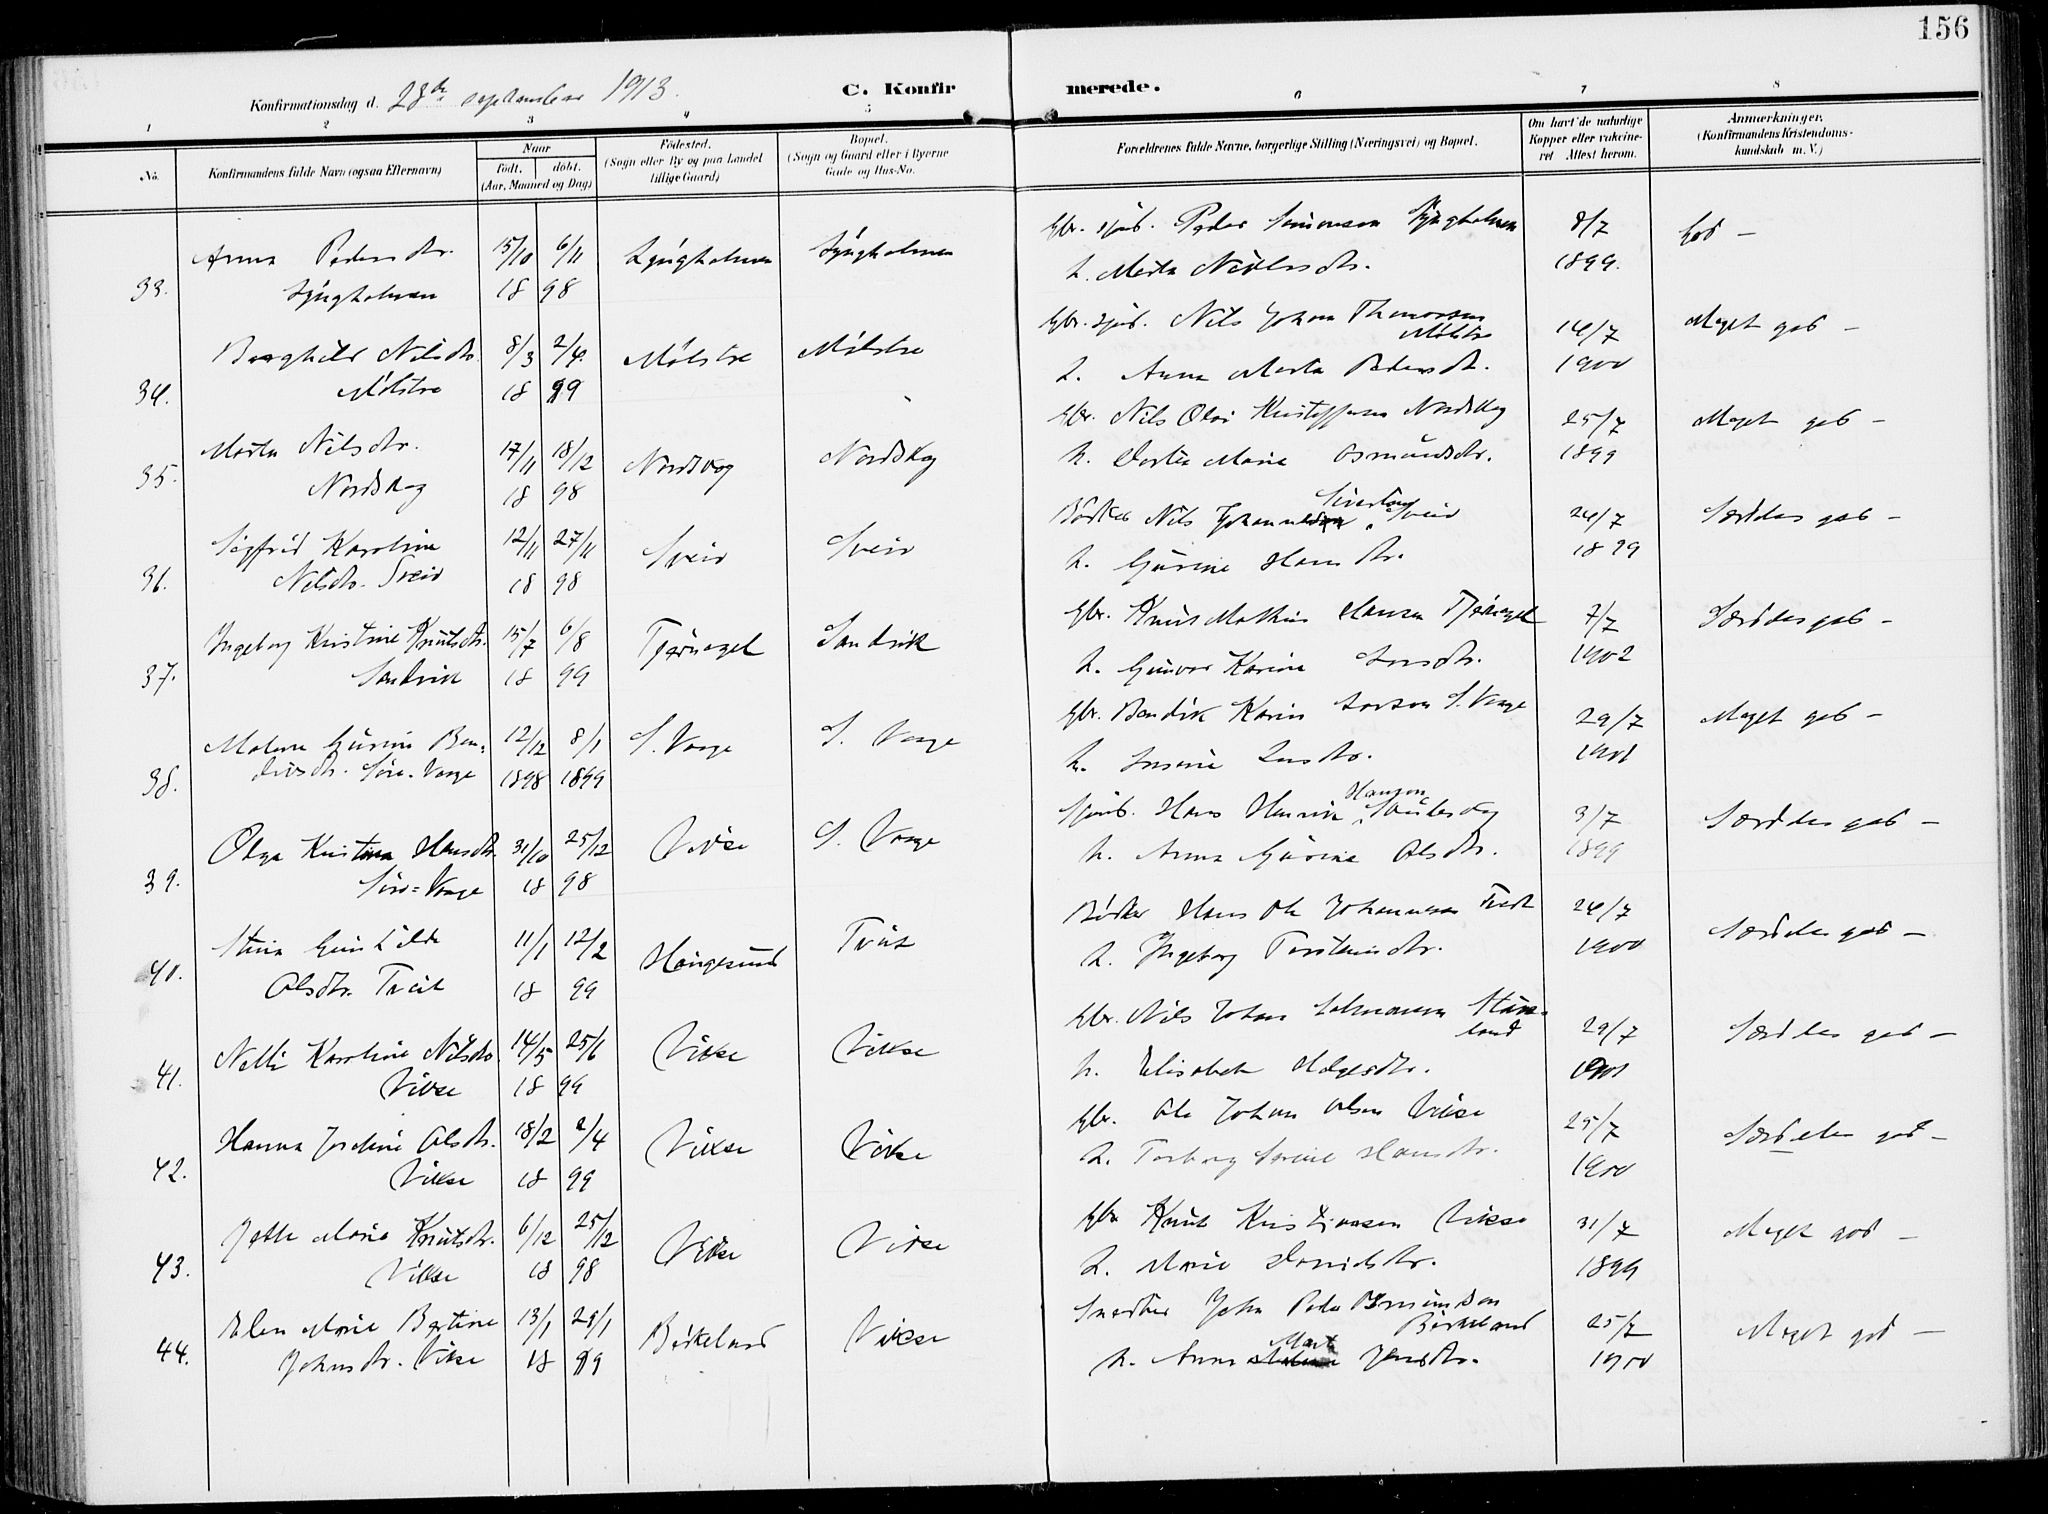 156
Konfirmationsdag d. 28de september 1913.
C. Konfir merede.
1 2 3 4 5 6 7 8
No.
Konfirmandens fulde Navn (ogsaa Efternavn)
Naar
født. døbt.
(Aar, Maaned og Dag)
Fødested.
(Sogn eller By og paa Landet
tillige Gaard)
Bopæl.
(Sogn og Gaard eller i Byerne
Gade og Hus-No.
Forældrenes fulde Navne, borgerlige Stilling (Næringsvei) og Bopæl.
Om havt de naturlige
Kopper eller vakcine-
ret Attest herom.
Anmærkninger.
(Konfirmandens Kristendoms-
kundskab m. V.)
Anna Pedersdtr. 15/10 6/11 Lyngholmen Lyngholmen Gbr. sjmb. Peder Simonsen Lyngholmen 8/7 God —
33. Lyngholmen 18 98 h. Marta Nilsdtr. 1899.
Borghild Nilsdtr. 8/3 2/4 Mølstre Mølstre Gbr. sjmb. Nils Johan Thomassen Mølstre 14/7 Meget god —
34. Mølstre 18 99 h. Anna Marta Pedersdtr. 1900
Marta Nilsdtr. 17/11 18/12 Nordskog Nordskog Gbr. Nils Olai Kristoffersen Nordskog 25/7 Meget god —
35. Nordskog 18 98 h. Dortea Marie Osmundsdtr. 1899
Sigfrid Karoline 12/11 27/11 Sveio Sveio Bødker Nils Johannes Sivertsen Sveio 24/7 Særdeles god —
36. Nilsdtr. Sveio 18 98 h. Gurine Hansdtr. 1899
Ingeborg Kristine Knutsdtr. 15/7 6/8 Tjernagel Sandvik Gbr. Knut Mathias Hansen Tjernagel 7/7 Særdeles god —
37. Sandvik 18 99 h. Gunvor Karine Larsdtr. 1902
Malene Gurine Ben- 12/12 8/1 S. Vaage S. Vaage Gbr. Bendik Larsen S. Vaage 29/7 Meget god —
38. diksdtr. Søre-Vaage 1898 1899 h. 1901
Olga Kristina Hansdtr. 31/10 25/12 Vikse S. Vaage Sjmb. Hans Henrik Hansen 3/7 Særdeles god —
39. Søre=Vaage 18 98 h. Anna Gurine Olsdtr. 1899
Stina Gunhilda 11/1 12/2 Haugesund Tveit Bødker Hans Ole Johannesen Tveit 24/7 Særdeles god —
40. Olsdtr. Tveit 18 99 h. Ingeborg Torsteinsdtr. 1900
Nelli Karoline Nilsdtr. 14/5 25/6 Vikse Vikse Gbr. Nils Johan Salmonsen land 29/7 Særdeles god —
41. Vikse 18 99 h. Elisabet Helgesdtr. 1901
Hanna Jordine Olsdtr. 18/2 2/4 Vikse Vikse Gbr. Ole Johan Olsen Vikse 25/7 Særdeles god —
42. Vikse 18 99 h. Torborg Serine Hansdtr. 1900
Jette Marie Knutsdtr. 6/12 25/12 Vikse Vikse Gbr Knut Kristjansen Vikse 31/7 Meget god —
43. Vikse 18 98 h. Marie Danielsdtr. 1899
Elen Marie Bertine 13/1 29/1 Birkeland Vikse Snedker John Peder Osmundsen Birkeland 25/7 Meget god —
44. Johnsdtr. Vikse 18 99 h. Anna Marta Jensdtr. 1900